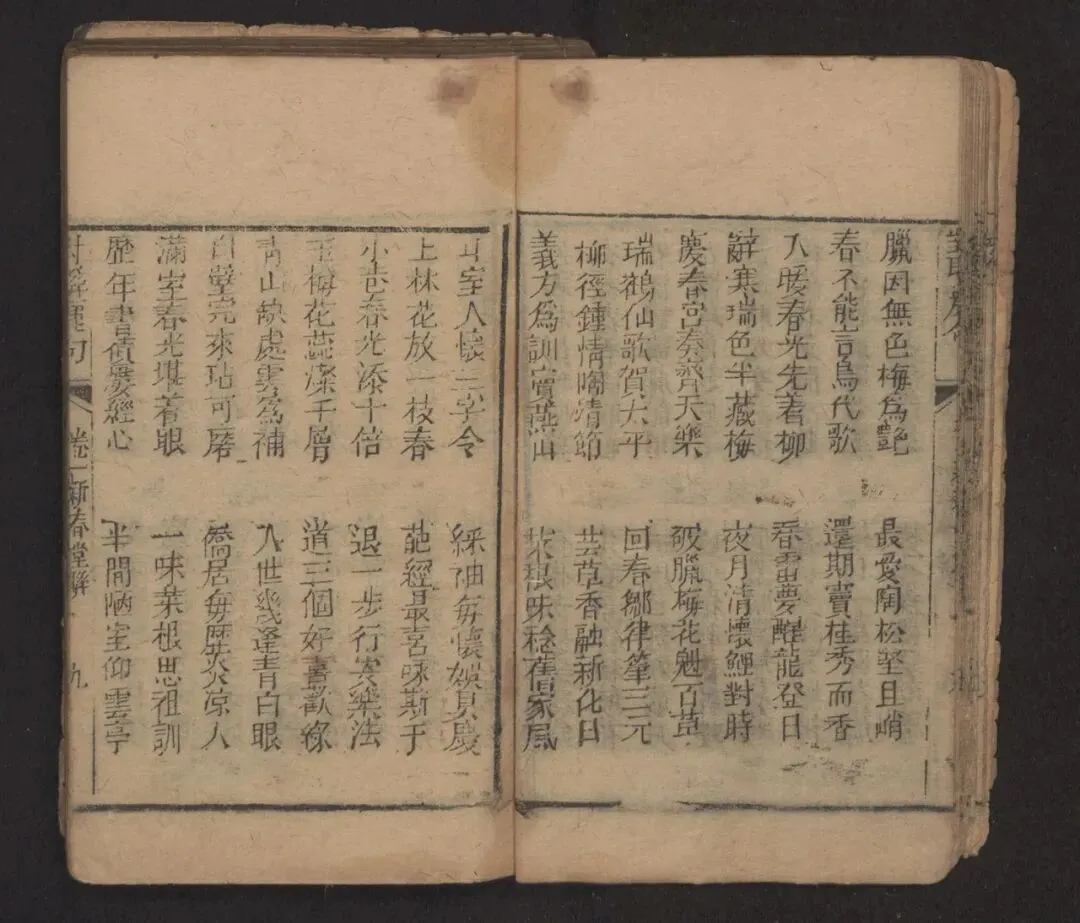 臘因無色梅為艷
最愛陶松堅且峭
春不能言鳥代歌
還期竇桂秀而香
入暖春光先着柳
春雷夢醒龍登日
辭寒瑞色半藏梅
夜月清懷鯉對時
慶春宮奏齊天樂
破臘梅花魁百草
瑞鶴仙歌賀太平
回春鄒律筆三元
柳徑鍾情陶靖節
芸草香融新化日
義方為訓竇燕山
菜根味稔舊家風
室人懷三字令
綵袖每懷娛具慶
上林花放一枝春
葩經最喜咏斯于
小巷春光添十倍
退一步行安樂法
玉梅花蕊燦千層
道三個好喜歡緣
青山缺處雲為補
入世幾逢青白眼
白璧完來玷可磨
僑居每歷炎涼人
滿室春光堪着眼
一味菜根思祖訓
歷年書債屢經心
半間陋室仰雲亭
卷一新春堂聯
九